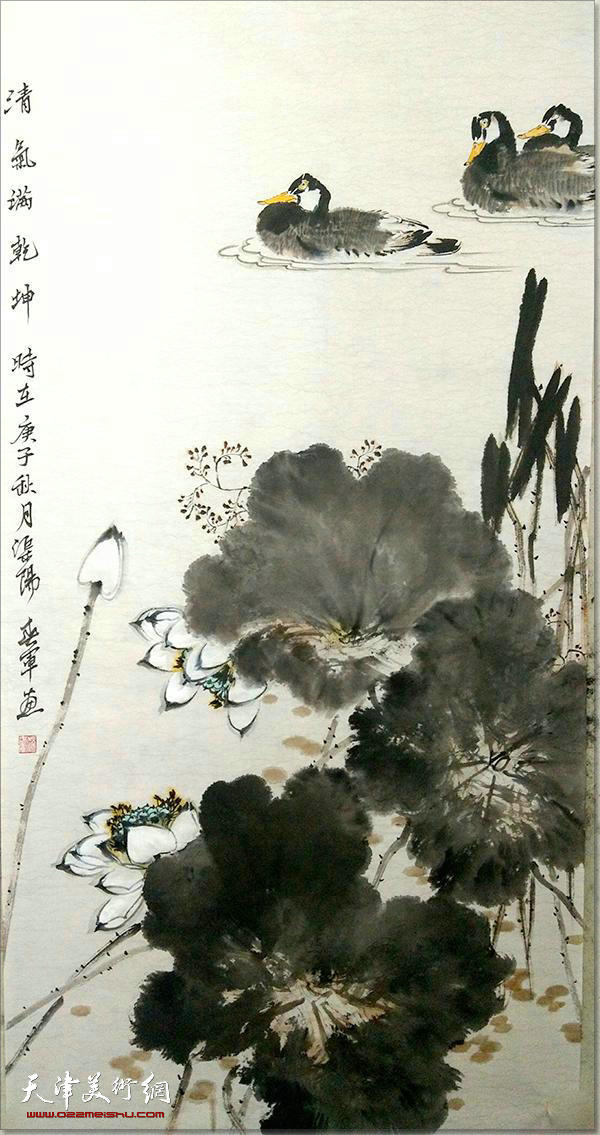 清氣滿乾坤 時在庚子秋月渠陽 春軍畫
天津美術網
www.022meishu.com